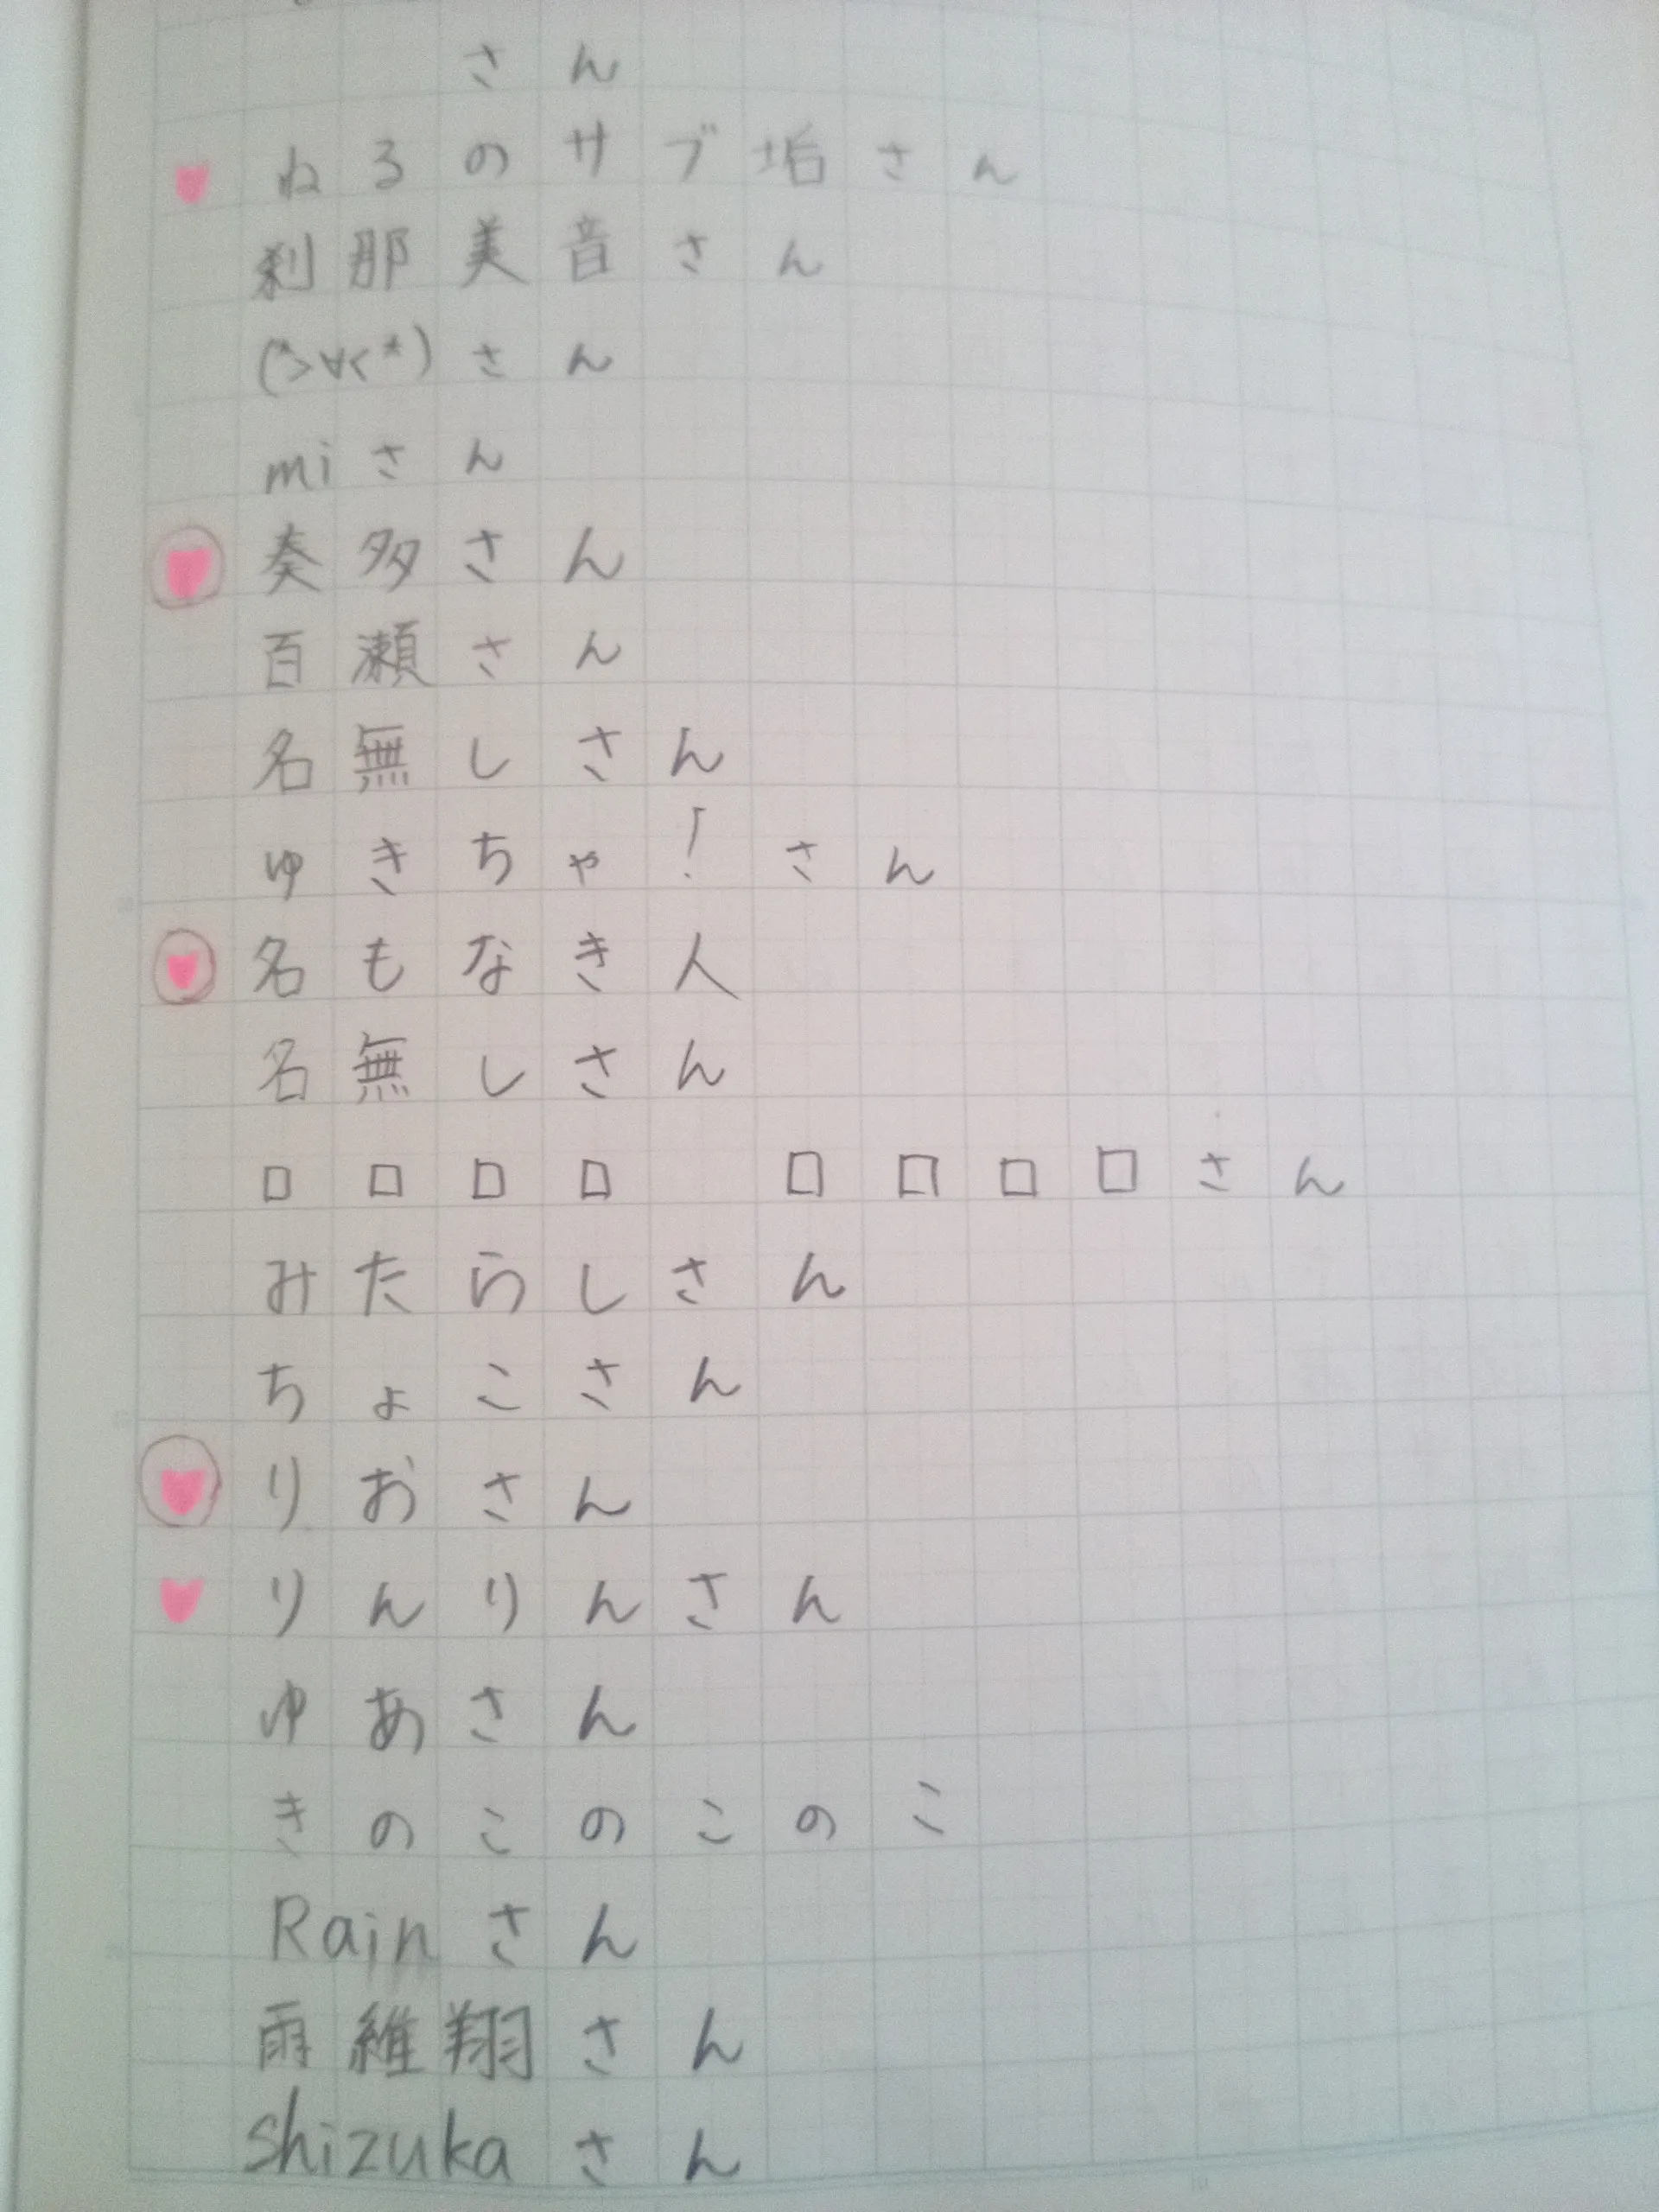 さん
ねるのサブ垢さん
刹那美音さん
(*>∀<*)さん
miさん
奏多さん
百瀬さん
名無しさん
ゆきちゃ!さん
名もなき人
名無しさん
ロロロロ ロロロロさん
みたらしさん
ちょこさん
りおさん
りんりんさん
ゆあさん
きのこのこのこ
Rainさん
雨維翔さん
shizukaさん